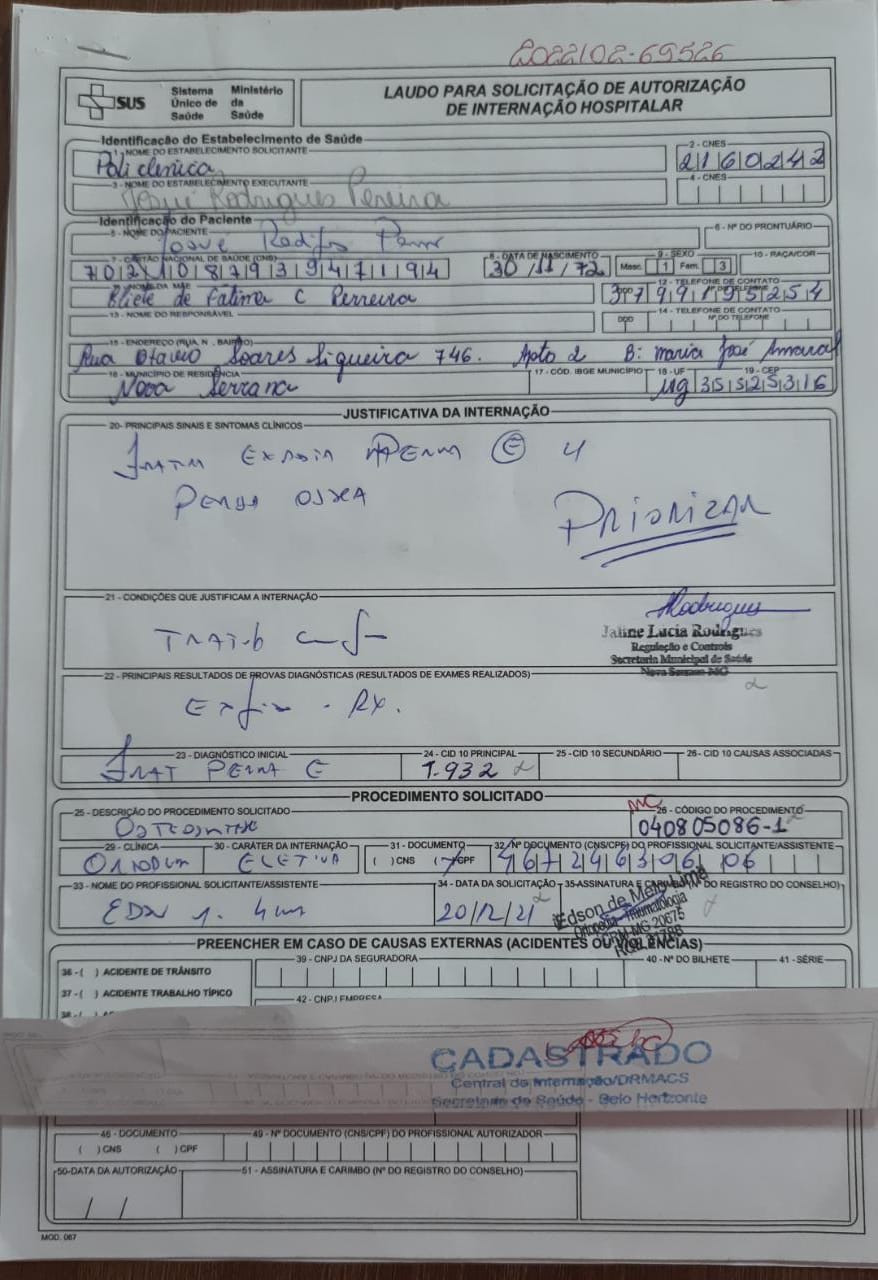 2022/02-69526
SUS Sistema Único de Saúde Ministério da Saúde
LAUDO PARA SOLICITAÇÃO DE AUTORIZAÇÃO
DE INTERNAÇÃO HOSPITALAR
Identificação do Estabelecimento de Saúde
1 - NOME DO ESTABELECIMENTO SOLICITANTE
2 - CNES
Policlenica
2160242
3 - NOME DO ESTABELECIMENTO EXECUTANTE
4 - CNES
Josué Rodrigues Pereira
Identificação do Paciente
5 - NOME DO PACIENTE
6 - Nº DO PRONTUÁRIO
Josué
7 - CARTÃO NACIONAL DE SAÚDE (CNS)
8 - DATA DE NASCIMENTO
9 - SEXO
10 - RAÇA/COR
30/11/72
Masc. 1 Fem. 3
NOME DA MÃE
12 - TELEFONE DE CONTATO
DDD Nº DO TELEFONE
de Fátima C Perreira
3799195254
13 - NOME DO RESPONSÁVEL
14 - TELEFONE DE CONTATO
DDD Nº DO TELEFONE
15 - ENDEREÇO (RUA, N , BAIRRO)
Rua Otavio Soares Siqueira 746. Apto 2 B: maria José Amaral
16 - MUNICÍPIO DE RESIDÊNCIA
17 - CÓD. IBGE MUNICÍPIO
18 - UF
19 - CEP
Nova Serrana
Mg 35525316
JUSTIFICATIVA DA INTERNAÇÃO
20- PRINCIPAIS SINAIS E SINTOMAS CLÍNICOS
PERNA E
OSSEA
PRIORIZAR
21 - CONDIÇÕES QUE JUSTIFICAM A INTERNAÇÃO
Rodrigues
Jaline Lucia Rodrigues
Regulação e Controle
Secretaria Municipal de Saúde
Nova Serrana-MG
22 - PRINCIPAIS RESULTADOS DE PROVAS DIAGNÓSTICAS (RESULTADOS DE EXAMES REALIZADOS)
RX.
23 - DIAGNÓSTICO INICIAL
24 - CID 10 PRINCIPAL
25 - CID 10 SECUNDÁRIO
26 - CID 10 CAUSAS ASSOCIADAS
FRAT PERNA E
T.932
PROCEDIMENTO SOLICITADO
25 - DESCRIÇÃO DO PROCEDIMENTO SOLICITADO
MC
26 - CÓDIGO DO PROCEDIMENTO
040805086-1
29 - CLÍNICA
30 - CARÁTER DA INTERNAÇÃO
31 - DOCUMENTO
32 - Nº DOCUMENTO (CNS/CPF) DO PROFISSIONAL SOLICITANTE/ASSISTENTE
ELETIVA
( ) CNS ( ) CPF
33 - NOME DO PROFISSIONAL SOLICITANTE/ASSISTENTE
34 - DATA DA SOLICITAÇÃO
35-ASSINATURA E CARIMBO (Nº DO REGISTRO DO CONSELHO)
20/12/21
Edson de Melo Lima
Ortopedia - Traumatologia
CRM-MG 20675
PREENCHER EM CASO DE CAUSAS EXTERNAS (ACIDENTES OU VIOLÊNCIAS)
36 - ( ) ACIDENTE DE TRÂNSITO
39 - CNPJ DA SEGURADORA
40 - Nº DO BILHETE
41 - SÉRIE
37 - ( ) ACIDENTE TRABALHO TÍPICO
42 - CNPJ EMPRESA
CADASTRADO
Central de Internação/DRMACS
Secretaria de Saúde - Belo Horizonte
48 - DOCUMENTO
49 - Nº DOCUMENTO (CNS/CPF) DO PROFISSIONAL AUTORIZADOR
( ) CNS ( ) CPF
50-DATA DA AUTORIZAÇÃO
51 - ASSINATURA E CARIMBO (Nº DO REGISTRO DO CONSELHO)
/ /
MOD. 067